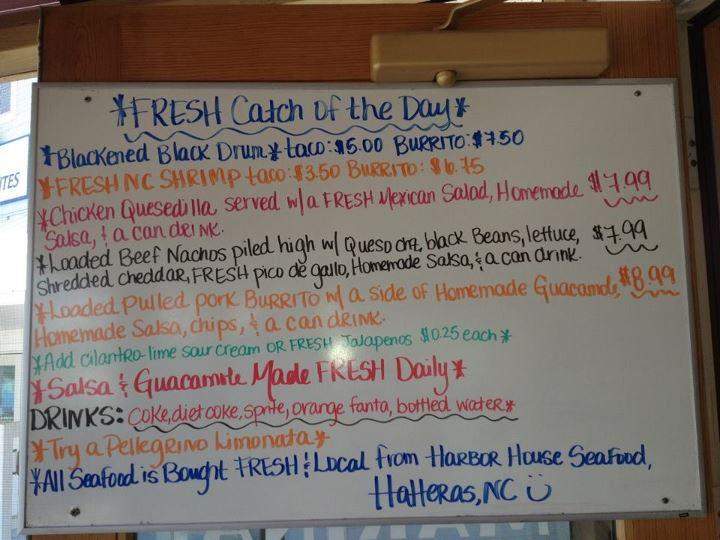 *FRESH Catch of the Day*
*Blackened Black Drum* taco: $5.00 BURRITO: $7.50
*FRESH NC SHRIMP taco: $3.50 BURRITO: $6.75
*Chicken Quesedilla served w/a FRESH Mexican Salad, Homemade $7.99
Salsa, & a can drink.
*Loaded Beef Nachos piled high w/ Queso chz, black Beans, lettuce, $7.99
Shredded cheddar, FRESH pico de gallo, Homemade Salsa, & a can drink.
*Loaded Pulled pork BURRITO w/ a side of Homemade Guacamole, $8.99
Homemade Salsa, chips, & a can drink.
*Add cilantro-lime sour cream OR FRESH Jalapenos $0.25 each*
*Salsa & Guacamole Made FRESH Daily*
DRINKS: Coke, diet coke, sprite, orange fanta, bottled water*
*Try a Pellegrino Limonata*
*All Seafood is Bought FRESH & Local from HARBOR House Seafood,
Hatteras, NC